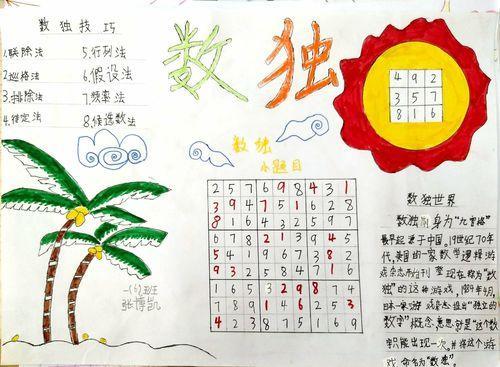 数独技巧
1.联除法
2.巡格法
3.排除法
4.待定法
5.行列法
6.假设法
7.频率法
8.候选数法
数独
4 9 2
3 5 7
8 1 6
数独
小题目
2 5 7 6 9 8 4 3 1
3 9 4 7 5 1 6 2 8
8 1 6 4 3 2 5 9 7
6 7 8 2 1 3 9 4 5
5 4 1 9 6 7 3 8 2
9 3 2 5 8 4 7 1 6
1 6 5 3 2 9 8 7 4
7 8 9 1 4 6 2 5 3
4 2 3 8 7 5 1 6 9
一(6)班
张博凯
数独世界
数独前身为"九宫格"
最早起源于中国。19世纪70年
代,美国的一家数学逻辑游
戏杂志
现在称为"数
独"的这种游戏,1984年4月,
日本
游戏杂志提出"独立的
数字"概念,意思就是"这个数
字只能出现一次",并将这个游
戏命名为"数独"。